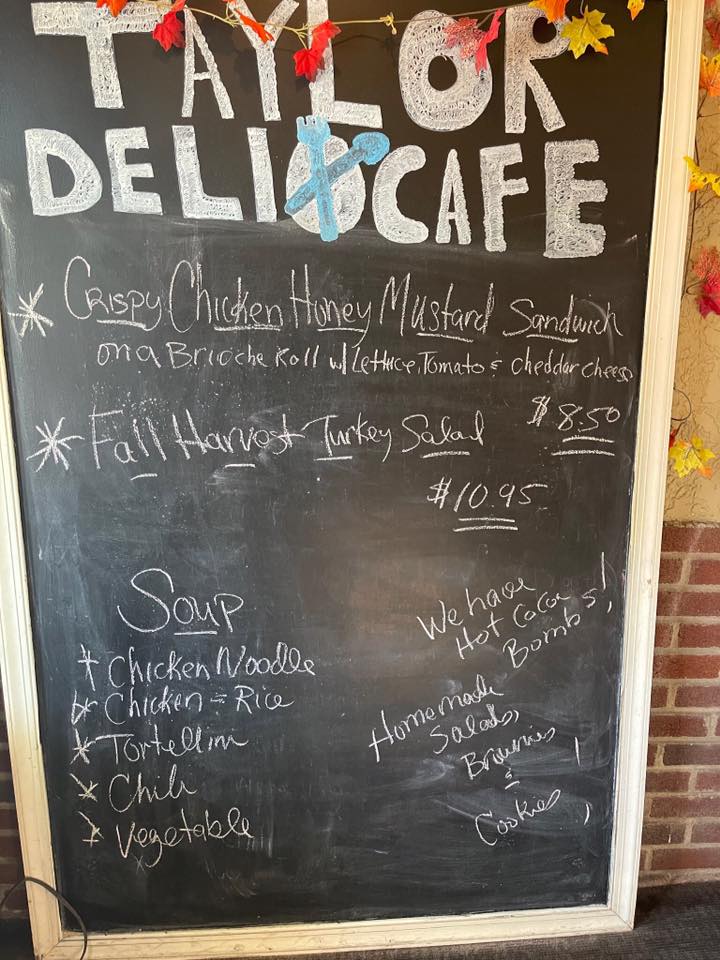 TAYLOR
DELI & CAFE
* Crispy Chicken Honey Mustard Sandwich
on a Brioche Roll w/ Lettuce, Tomato & cheddar cheese
$8.50
* Fall Harvest Turkey Salad
$10.95
Soup
* Chicken Noodle
* Chicken & Rice
* Tortellini
* Chili
* Vegetable
We have
Hot Cocoa
Bombs!
Homemade
Salads,
Brownies
&
Cookies!